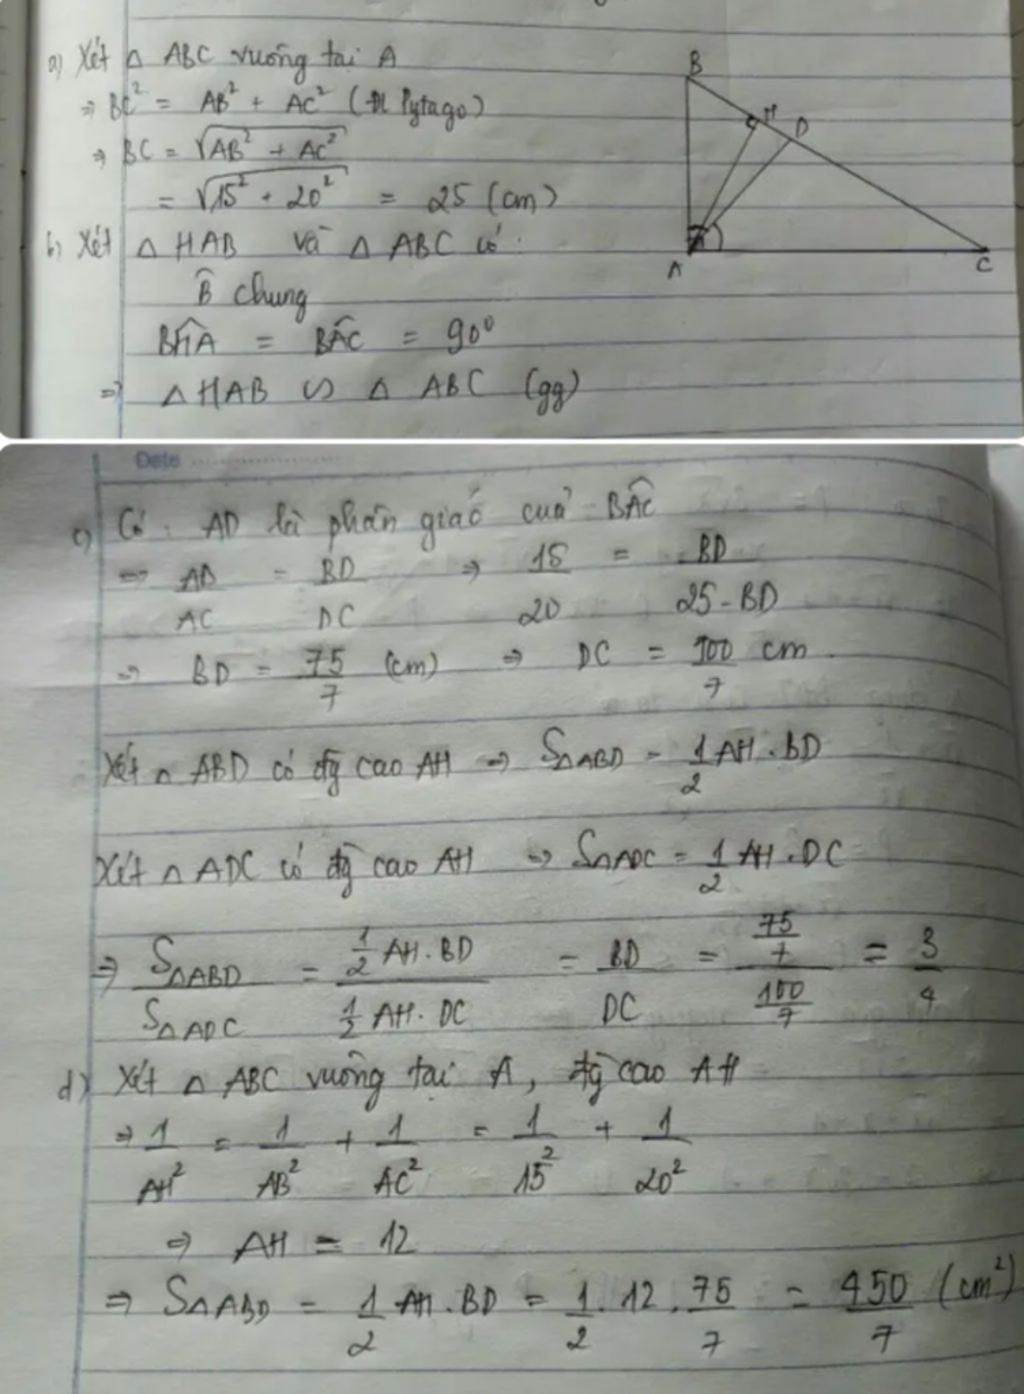 a) Xét △ ABC vuông tại A
⇒ BC² = AB² + AC² (ĐL Pytago)
⇒ BC = √(AB² + AC²)
= √(15² + 20²) = 25 (cm)
b) Xét △ HAB và △ ABC có:
B̂ chung
BĤA = BÂC = 90°
⇒ △ HAB ∽ △ ABC (gg)
B
H
D
A
C
Date
c) Có: AD là phân giác của BÂC
⇒ AB/AC = BD/DC ⇒ 15/20 = BD/(25-BD)
⇒ BD = 75/7 (cm) ⇒ DC = 100/7 cm.
Xét △ ABD có đg̀ cao AH ⇒ S△ABD = 1/2 AH.BD
Xét △ ADC có đg̀ cao AH ⇒ S△ADC = 1/2 AH.DC
⇒ S△ABD/S△ADC = (1/2 AH.BD)/(1/2 AH.DC) = BD/DC = (75/7)/(100/7) = 3/4
d) Xét △ ABC vuông tại A, đg̀ cao AH
⇒ 1/AH² = 1/AB² + 1/AC² = 1/15² + 1/20²
⇒ AH = 12
⇒ S△ABD = 1/2 AH.BD = 1/2.12.75/7 = 450/7 (cm²)